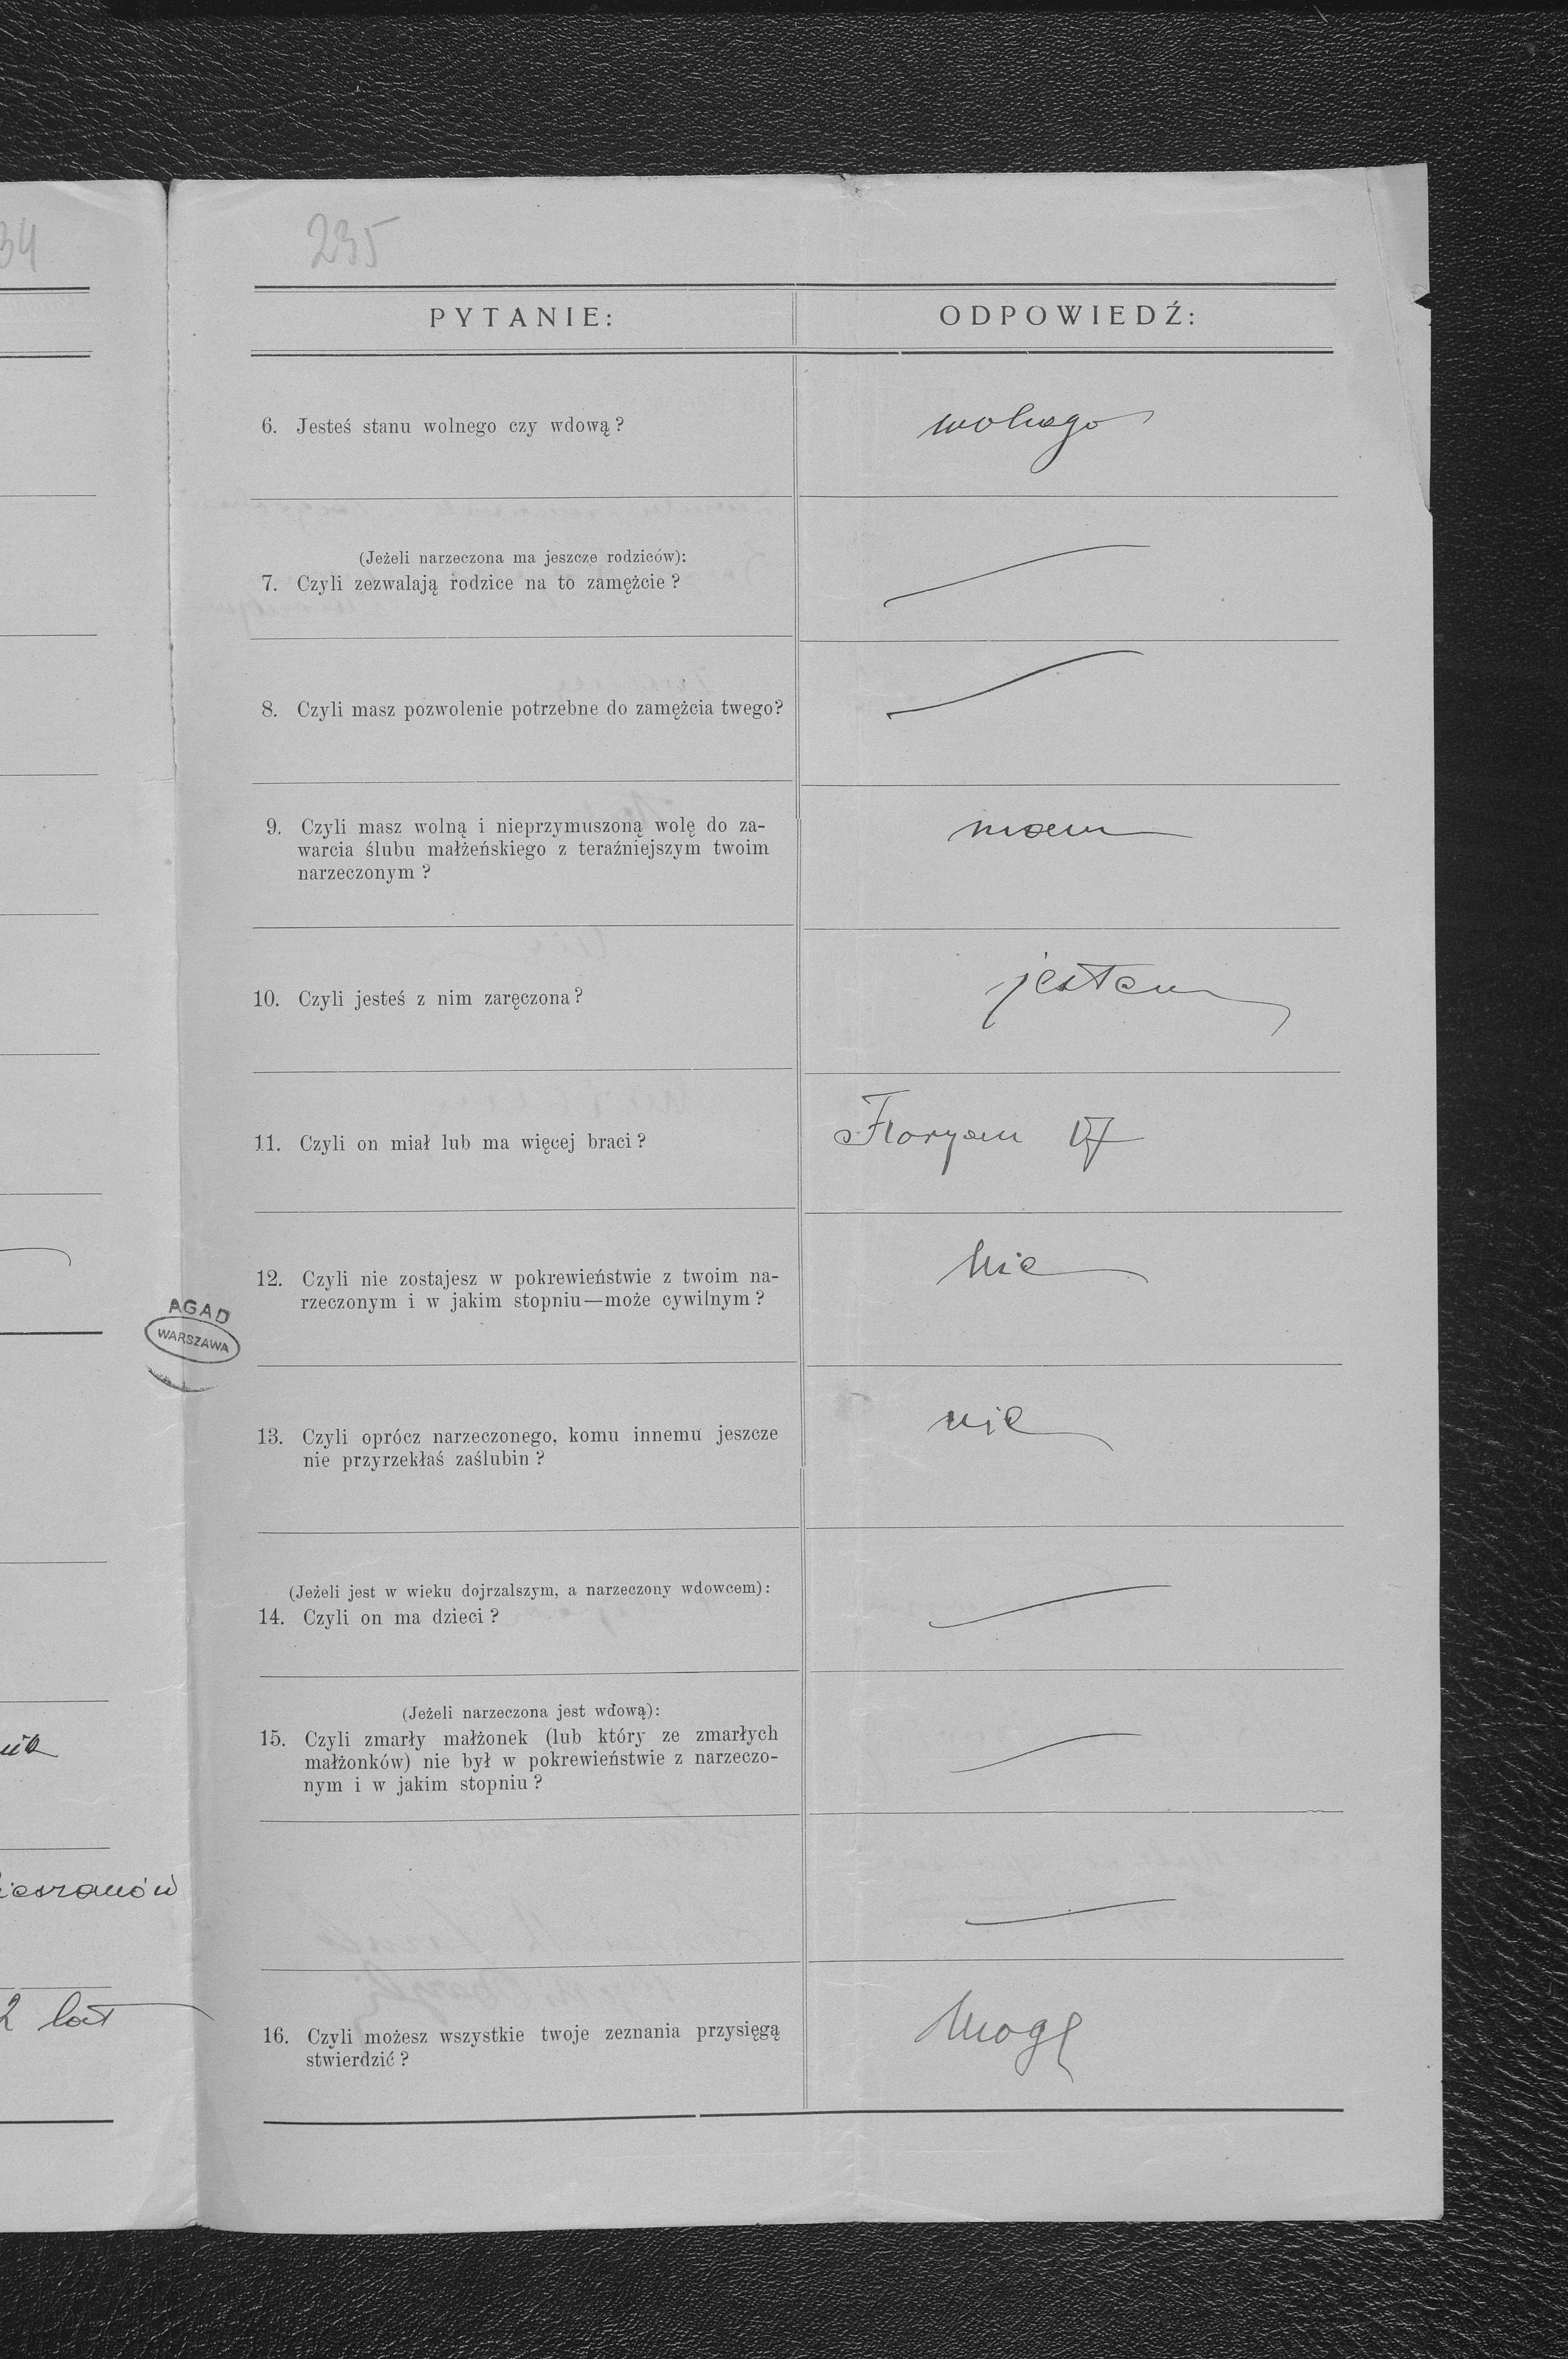 34
235
PYTANIE:
ODPOWIEDŹ:
6. Jesteś stanu wolnego czy wdową?
wolnego
(Jeżeli narzeczona ma jeszcze rodziców):
7. Czyli zezwalają rodzice na to zamężcie?
8. Czyli masz pozwolenie potrzebne do zamężcia twego?
9. Czyli masz wolną i nieprzymuszoną wolę do za-
warcia ślubu małżeńskiego z teraźniejszym twoim
narzeczonym?
mam
10. Czyli jesteś z nim zaręczona?
jestem
11. Czyli on miał lub ma więcej braci?
Floryan 17
12. Czyli nie zostajesz w pokrewieństwie z twoim na-
rzeczonym i w jakim stopniu—może cywilnym?
Nie
AGAD
WARSZAWA
13. Czyli oprócz narzeczonego, komu innemu jeszcze
nie przyrzekłaś zaślubin?
nie
(Jeżeli jest w wieku dojrzalszym, a narzeczony wdowcem):
14. Czyli on ma dzieci?
(Jeżeli narzeczona jest wdową):
15. Czyli zmarły małżonek (lub który ze zmarłych
małżonków) nie był w pokrewieństwie z narzeczo-
nym i w jakim stopniu?
2 lat
16. Czyli możesz wszystkie twoje zeznania przysięgą
stwierdzić?
Mogę